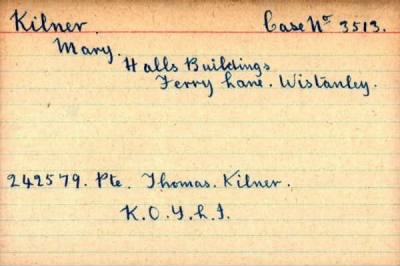 Kilner. Case No 3513.
Mary.
Halls Buildings
Ferry Lane. Wistanley.
242579. Pte. Thomas. Kilner.
K.O.Y.L.I.